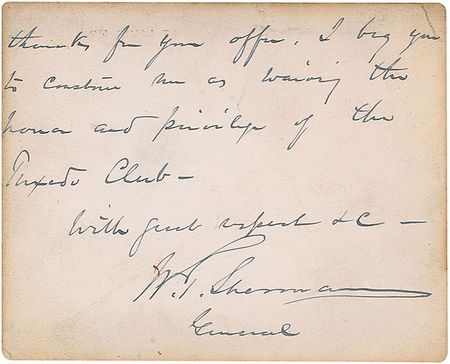 thanks for your offer. I beg you
to construe me as waiving the
honor and privilege of the
Tuxedo Club –
With great respect &c –
W. T. Sherman
General